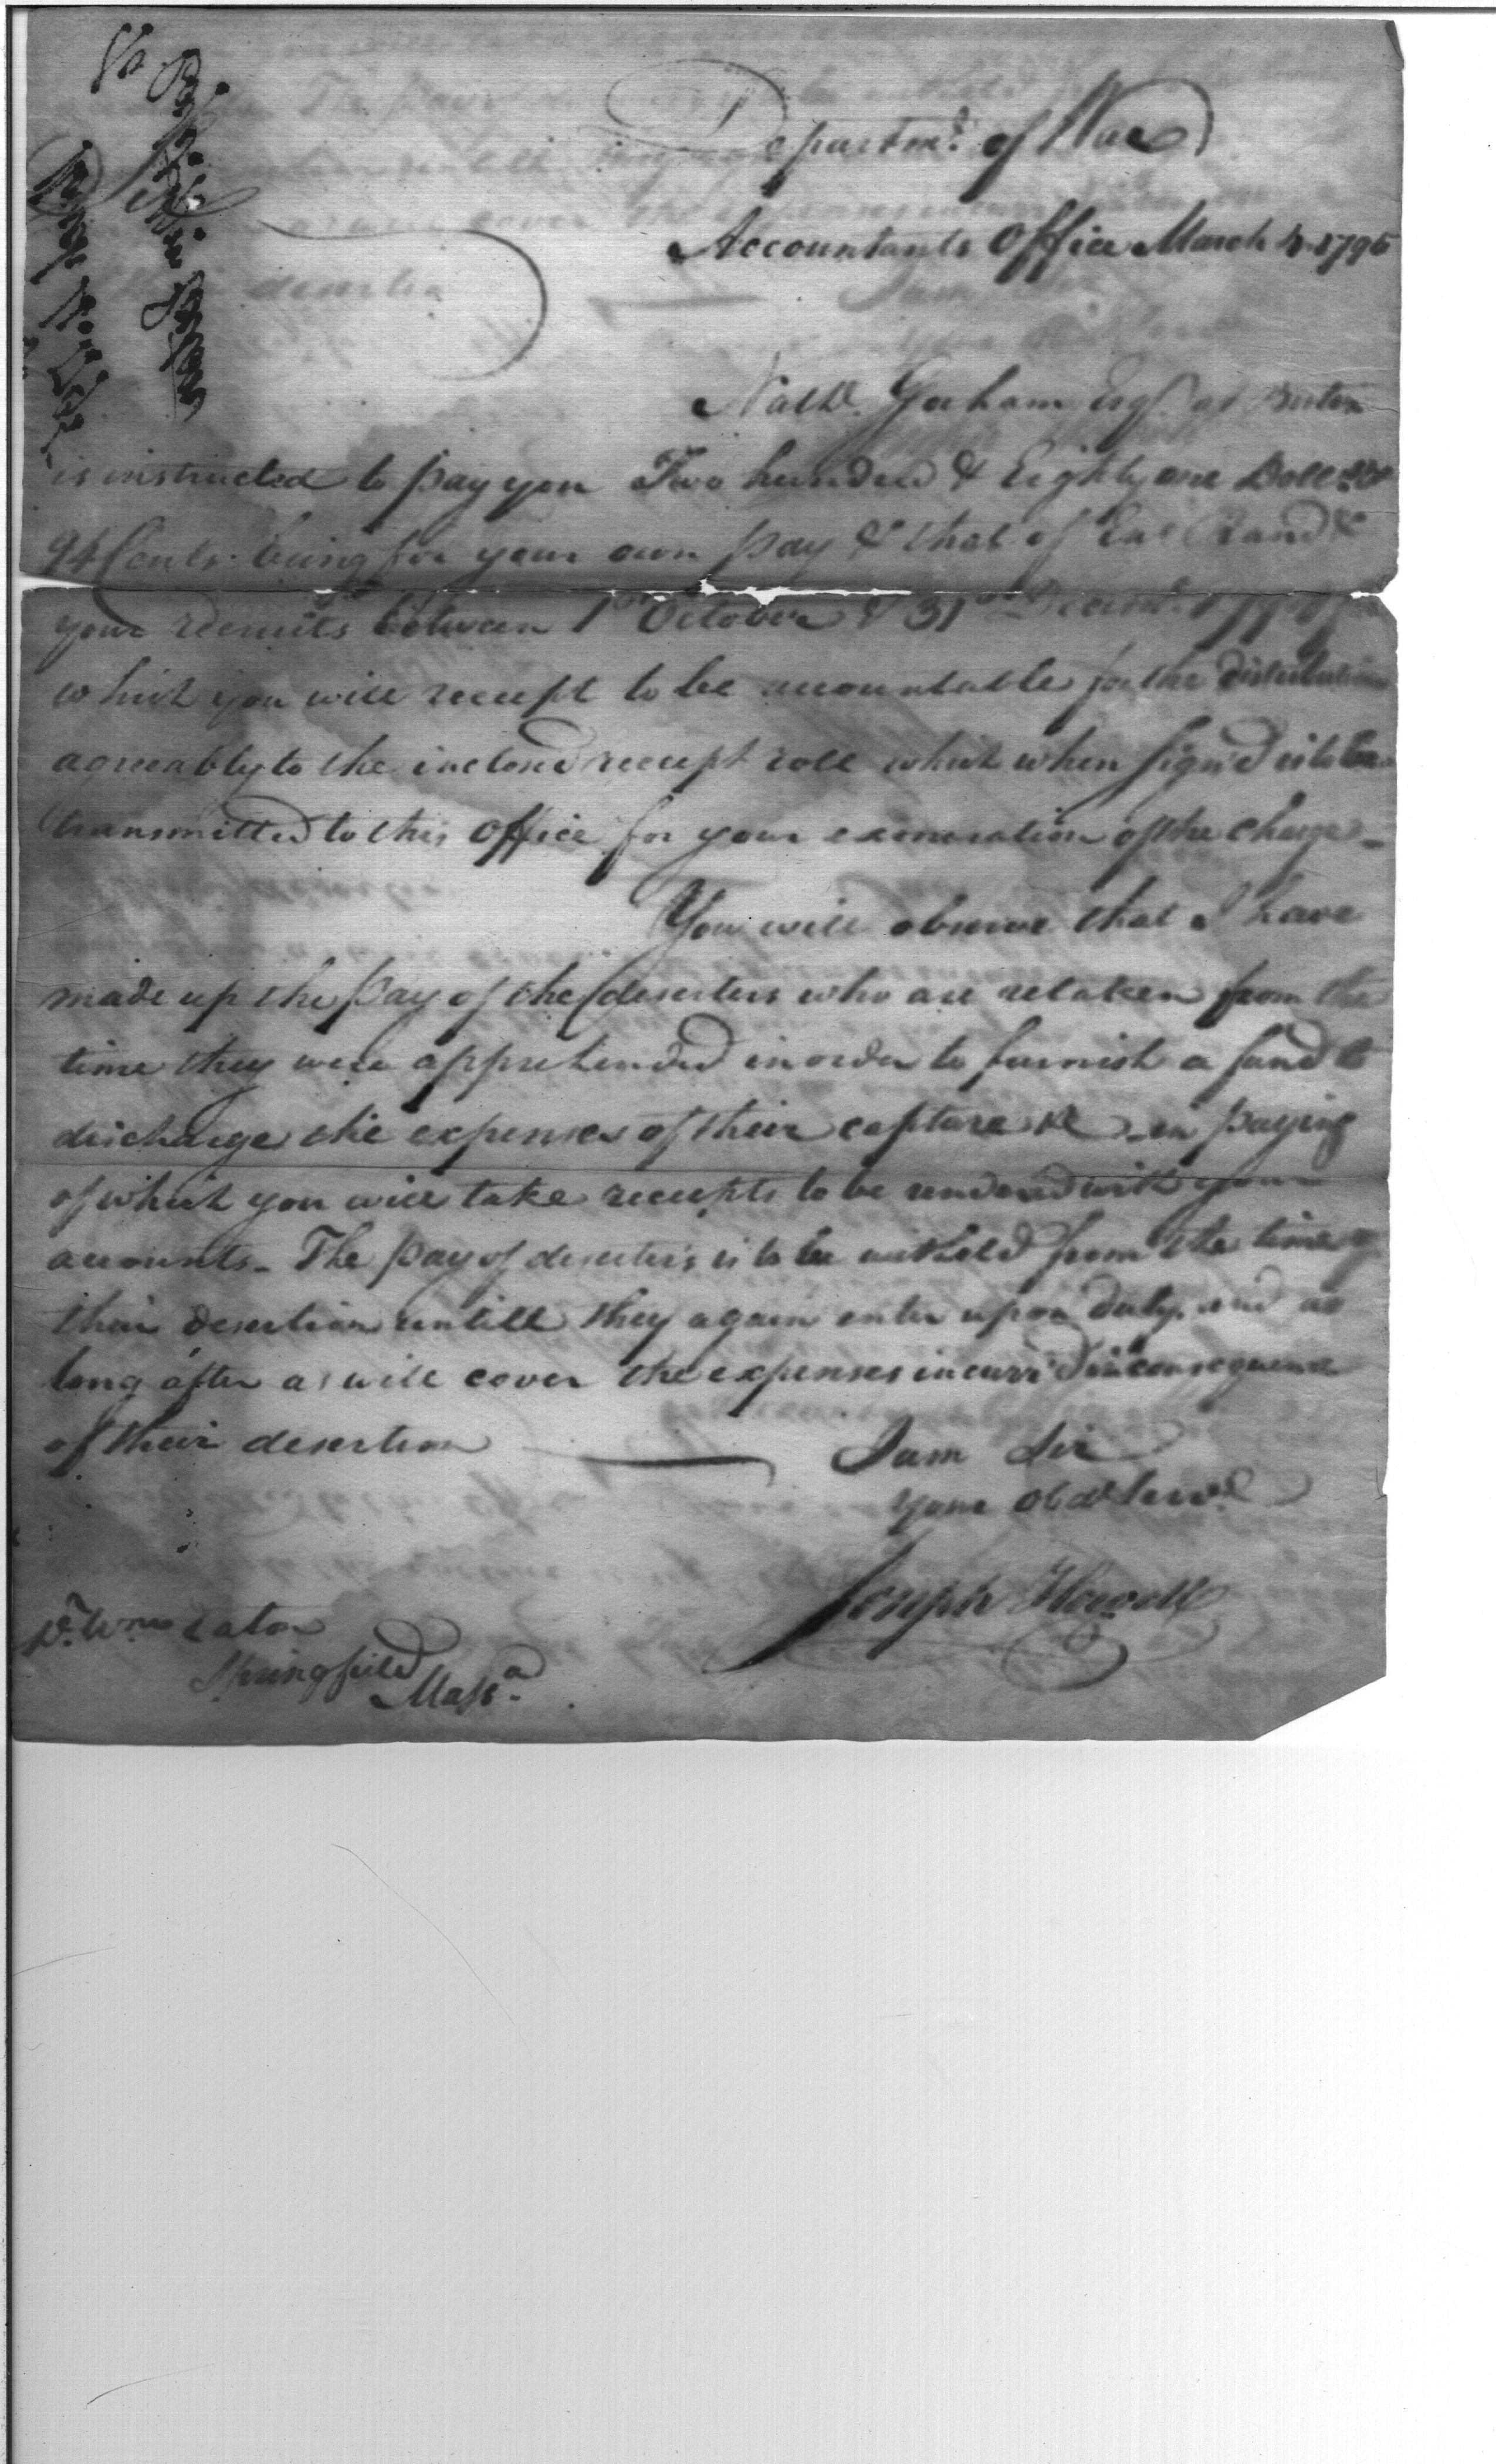 Departmt. of War
Accountants Office March 4. 1795
Sir
Nathl. Gorham Esqr. at Boston
is instructed to pay you Two hundred & Eighty one Dolls. &
94 Cents. being for your own pay & that of Rand &
your recruits between 1st October & 31st Decemr.
which you will receipt to be accountable for the distribution
agreeably to the inclosed receipt roll which when sign'd is to be
transmitted to this Office for your exoneration of the charge –
You will observe that I have
made up the pay of the deserters who are retaken from the
time they were apprehended in order to furnish a fund to
discharge the expenses of their capture &c – in paying
of which you will take receipts to be rendered with your
accounts – The pay of deserters is to be witheld from the time of
their desertion untill they again enter upon duty. and as
long after as will cover the expenses incurr'd in consequence
of their desertion
I am Sir
Your Obdt Servt.
Joseph Howell
Wm Eaton
Springfield
Massa.